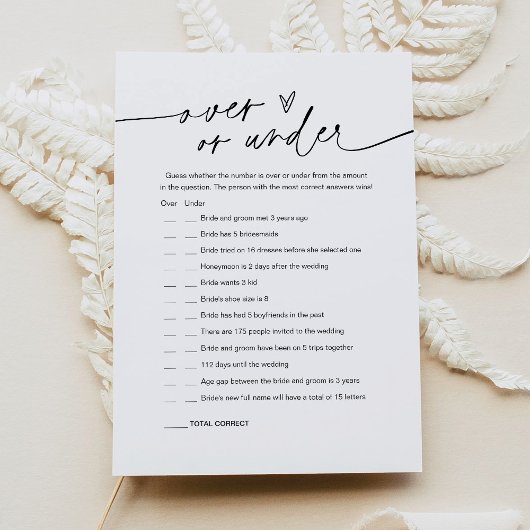 over
or under
Guess whether the number is over or under from the amount
in the question. The person with the most correct answers wins!
Over Under
___ ___ Bride and groom met 3 years ago
___ ___ Bride has 5 bridesmaids
___ ___ Bride tried on 16 dresses before she selected one
___ ___ Honeymoon is 2 days after the wedding
___ ___ Bride wants 3 kid
___ ___ Bride's shoe size is 8
___ ___ Bride has had 5 boyfriends in the past
___ ___ There are 175 people invited to the wedding
___ ___ Bride and groom have been on 5 trips together
___ ___ 112 days until the wedding
___ ___ Age gap between the bride and groom is 3 years
___ ___ Bride's new full name will have a total of 15 letters
______ TOTAL CORRECT